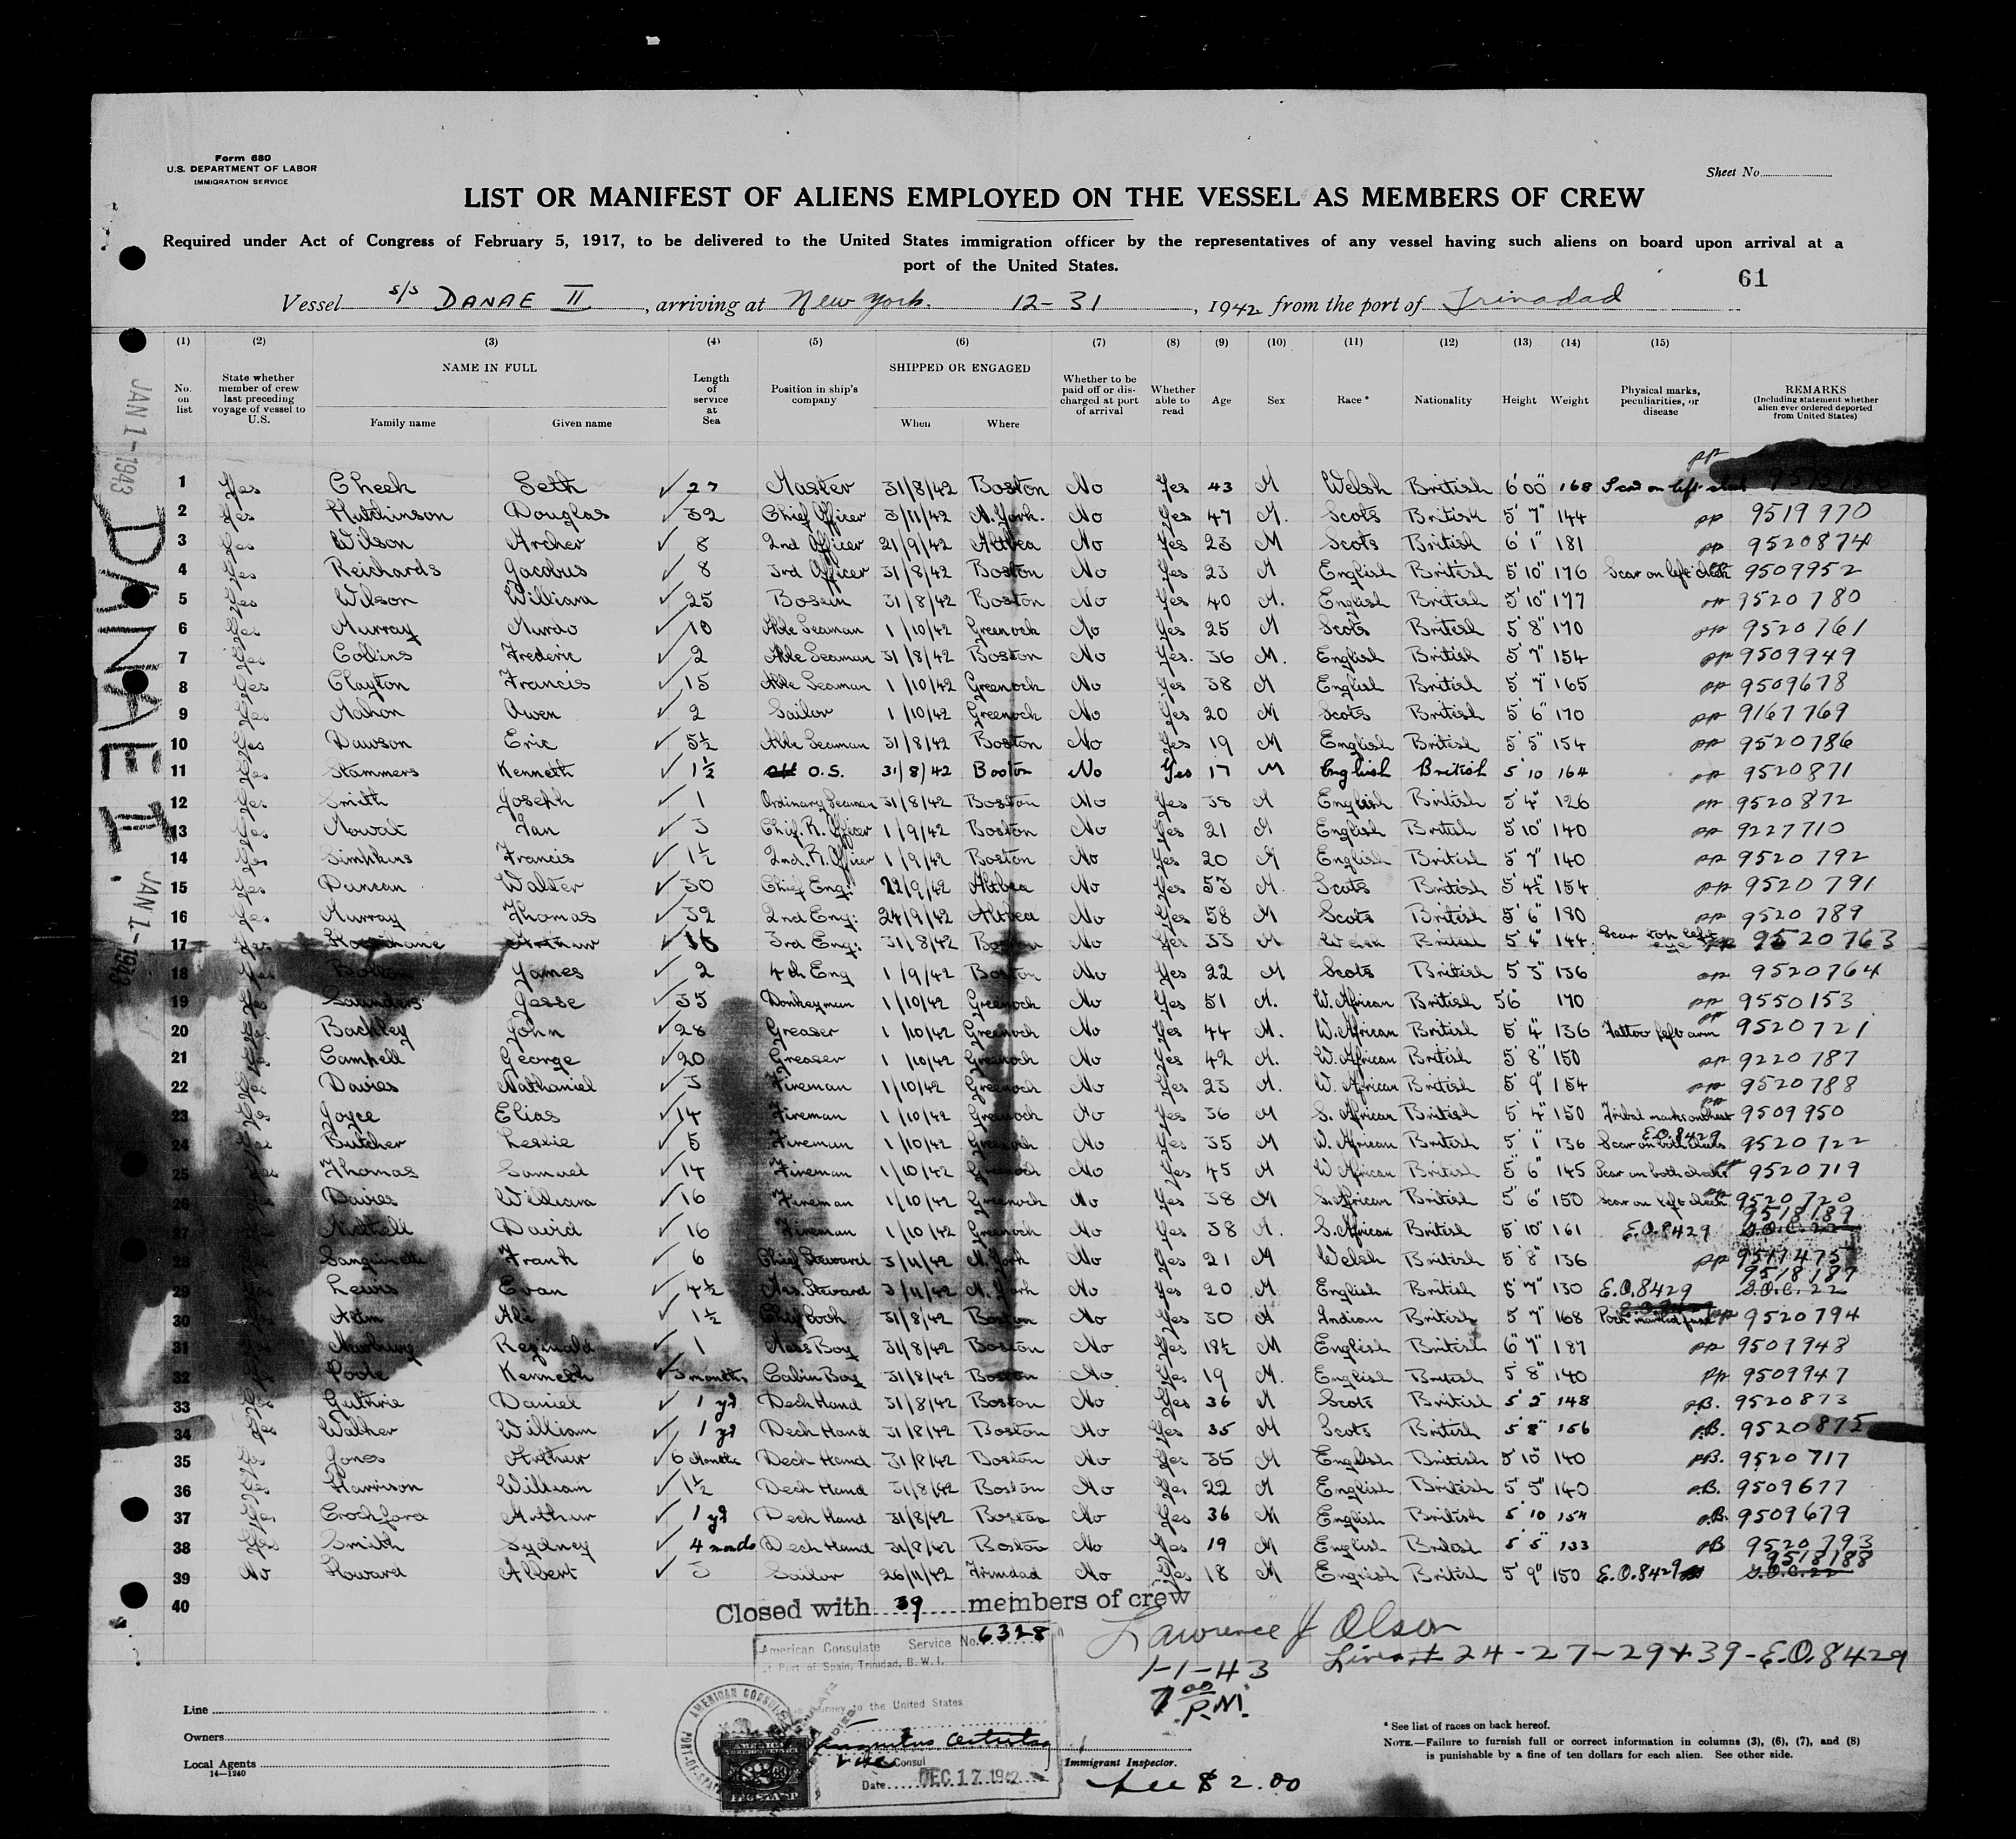 Form 680
U.S. DEPARTMENT OF LABOR
IMMIGRATION SERVICE
Sheet No.
LIST OR MANIFEST OF ALIENS EMPLOYED ON THE VESSEL AS MEMBERS OF CREW
Required under Act of Congress of February 5, 1917, to be delivered to the United States immigration officer by the representatives of any vessel having such aliens on board upon arrival at a
port of the United States.
61
Vessel s/s DANAE II, arriving at New York. 12-31, 1942, from the port of Trinadad
(1) (2) (3) (4) (5) (6) (7) (8) (9) (10) (11) (12) (13) (14) (15)
No. on list State whether member of crew last preceding voyage of vessel to U.S. NAME IN FULL Family name Given name Length of service at Sea Position in ship's company SHIPPED OR ENGAGED When Where Whether to be paid off or discharged at port of arrival Whether able to read Age Sex Race* Nationality Height Weight Physical marks, peculiarities, or disease REMARKS (Including statement whether alien ever ordered deported from United States)
JAN 1-1943
DANAE II.
JAN 1-1943
1 Yes Cheek Seth ✓ 27 Master 31/8/42 Boston No Yes 43 M Welsh British 6'00" 168 Scar on left cheek pp
2 Yes Hutchinson Douglas ✓ 32 Chief Officer 3/11/42 N. York. No Yes 47 M. Scots British 5'7" 144 pp 9519970
3 Yes Wilson Archer ✓ 8 2nd Officer 21/9/42 Altbea No Yes 23 M Scots British 6'1" 181 pp 9520874
4 Yes Reichards Jacobus ✓ 8 3rd Officer 31/8/42 Boston No Yes 23 M English British 5'10" 176 Scar on left cheek 9509952
5 Yes Wilson William ✓ 25 Bosun 31/8/42 Boston No Yes 40 M. English British 5'10" 177 pp 9520780
6 Yes Murray Murdo ✓ 10 Able Seaman 1/10/42 Greenock No Yes 25 M Scots British 5'8" 170 pp 9520761
7 Yes Collins Frederic ✓ 2 Able Seaman 31/8/42 Boston No Yes. 36 M. English British 5'7" 154 pp 9509949
8 Yes Clayton Francis ✓ 15 Able Seaman 1/10/42 Greenock No Yes 38 M English British 5'7" 165 pp 9509678
9 Yes Mahon Owen ✓ 2 Sailor 1/10/42 Greenock No Yes 20 M Scots British 5'6" 170 pp 9167769
10 Yes Dawson Eric ✓ 5½ Able Seaman 31/8/42 Boston No Yes 19 M English British 5'5" 154 pp 9520786
11 Yes Stammers Kenneth ✓ 1½ O.S. 31/8/42 Boston No Yes 17 M English British 5'10 164 pp 9520871
12 Yes Smith Joseph ✓ 1 Ordinary Seaman 31/8/42 Boston No Yes 38 M English British 5'4" 126 pp 9520872
13 Yes Mowat Ian ✓ 3 Chif. R. Officer 1/9/42 Boston No Yes 21 M English British 5'10" 140 pp 9227710
14 Yes Simpkins Francis ✓ 1½ 2nd. R. Officer 1/9/42 Boston No Yes 20 M English British 5'7" 140 pp 9520792
15 Yes Duncan Walter ✓ 30 Chief Eng: 22/9/42 Altbea No Yes 53 M. Scots British 5'4½" 154 pp 9520791
16 Yes Murray Thomas ✓ 32 2nd Eng: 24/9/42 Altbea No Yes 58 M Scots British 5'6" 180 pp 9520789
17 Yes Arthur ✓ 3rd Eng: 31/8/42 Boston No Yes 33 M Welsh British 5'4" 144 Scar top left eye pp 9520763
18 Yes Bolton James ✓ 2 4th Eng 1/9/42 Boston No Yes 22 M Scots British 5'3" 136 pp 9520764
19 Yes Saunders Jesse ✓ 35 Donkeyman 1/10/42 Greenock No Yes 51 M. W. African British 5'6" 170 pp 9550153
20 Yes Backley John ✓ 28 Greaser 1/10/42 Greenock No Yes 44 M. W. African British 5'4" 136 Tattoo left arm pp 9520721
21 Yes Campell George ✓ 20 Greaser 1/10/42 Greenock No Yes 42 M. W. African British 5'8" 150 pp 9220787
22 Yes Davies Nathaniel ✓ 3 Fireman 1/10/42 Greenock No Yes 23 M. W. African British 5'9" 154 pp 9520788
23 Yes Joyce Elias ✓ 14 Fireman 1/10/42 Greenock No Yes 36 M S. African British 5'4" 150 Tribal marks on chest pp 9509950
24 Yes Butcher Leslie ✓ 5 Fireman 1/10/42 Greenock No Yes 35 M W. African British 5'1" 136 Scar on both cheeks E.O.8429 9520722
25 Yes Thomas Samuel ✓ 14 Fireman 1/10/42 Greenock No Yes 45 M W African British 5'6" 145 Scar on both cheeks pp 9520719
26 Davies William ✓ 16 Fireman 1/10/42 Greenock No Yes 38 M S. African British 5'6" 150 Scar on left cheek pp 9520720
27 David ✓ 16 Fireman 1/10/42 Greenock No Yes 38 M. S. African British 5'10" 161 E.O.8429 9518189
28 Frank ✓ 6 Chief Steward 3/11/42 N. York No Yes 21 M Welsh British 5'8" 136 pp 9511475
29 Lewis Evan ✓ 4½ Ass. Steward 3/11/42 N. York No Yes 20 M English British 5'7" 130 E.O.8429 9518187
30 Ali ✓ 1½ Chief Cook 31/8/42 Boston No Yes 30 M Indian British 5'7" 168 Pock marked face pp 9520794
31 Newbury Reginald ✓ 1 Mess Boy 31/8/42 Boston No Yes 18½ M English British 6'7" 187 pp 9509948
32 Poole Kenneth ✓ 3 months Cabin Boy 31/8/42 Boston No Yes 19 M. English British 5'8" 140 pp 9509947
33 Yes Guthrie Daniel ✓ 1 yr Deck Hand 31/8/42 Boston No Yes 36 M Scots British 5'2" 148 p.B. 9520873
34 Yes Walker William ✓ 1 yr Deck Hand 31/8/42 Boston No Yes 35 M Scots British 5'8" 156 p.B. 9520875
35 Yes Jones Arthur ✓ 6 Months Deck Hand 31/8/42 Boston No Yes 35 M English British 5'10" 140 p.B. 9520717
36 Yes Harrison William ✓ 1½ Deck Hand 31/8/42 Boston No Yes 22 M English British 5'5" 140 p.B. 9509677
37 Yes Crockford Arthur ✓ 1 yr Deck Hand 31/8/42 Boston No Yes 36 M English British 5'10 154 p.B. 9509679
38 Yes Smith Sydney ✓ 4 months Deck Hand 31/8/42 Boston No Yes 19 M English British 5'5" 133 pB 9520793
39 No Howard Albert ✓ 3 Sailor 26/11/42 Trinidad No Yes 18 M English British 5'9" 150 E.O.8429 9518188
40
Closed with 39 members of crew
Lawrence J Olson
Lines # 24-27-29+39-E.O.8429
1-1-43
7 00 P.M.
American Consulate Service No. 6328
at Port of Spain, Trinidad, B.W.I.
Journey to the United States
Vice Consul
Date DEC 17 1942
Line
Owners
Local Agents
14—1240
Immigrant Inspector.
fee $2.00
* See list of races on back hereof.
NOTE.—Failure to furnish full or correct information in columns (3), (6), (7), and (8)
is punishable by a fine of ten dollars for each alien. See other side.